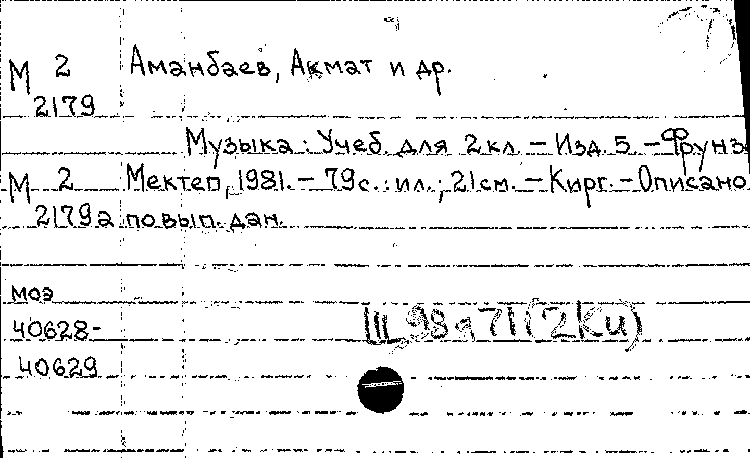 М 2 Аманбаев, Акмат и др.
2179
Музыка : Учеб. для 2 кл. — Изд. 5. — Фрунзе
М 2 Мектеп, 1981. — 79 с. : ил. ; 21 см. — Кирг. — Описано
2179а по вып. дан.
моэ
40628-
40629
Щ 98 я 71 (2Ки)